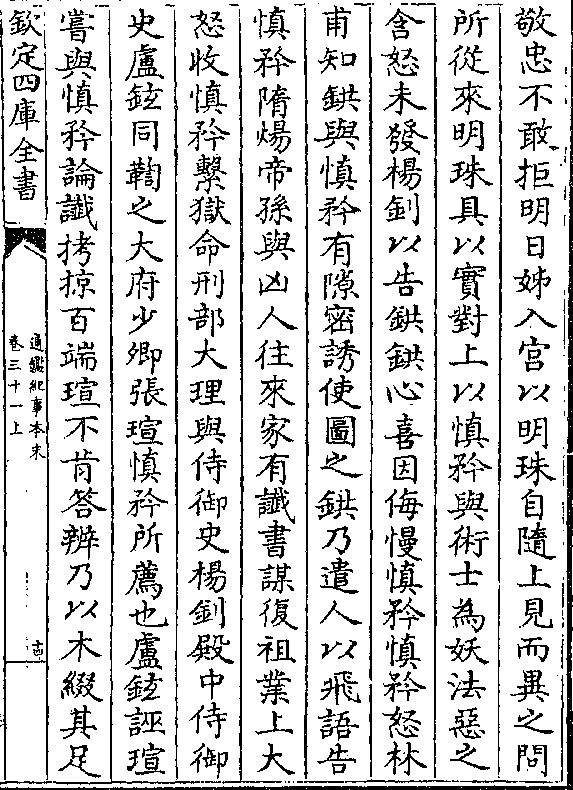 敬忠不敢拒明日姊入宫以明珠自隨上見而異之問
所從來明珠具以實對上以慎矜與術士為妖法惡之
含怒未發楊釗以告鉷鉷心喜因侮慢慎矜慎矜怒林
甫知鉷與慎矜有隙密誘使圖之鉷乃遣人以飛語告
慎矜隋煬帝孫與凶人往來家有讖書謀復祖業上大
怒收慎矜繫獄命刑部大理與侍御史楊釗殿中侍御
史盧鉉同鞫之大府少卿張瑄慎矜所薦也盧鉉誣瑄
嘗與慎矜論讖拷掠百端瑄不肯答辨乃以木綴其足
欽定四庫全書
通鑑紀事本末
卷三十一上
古